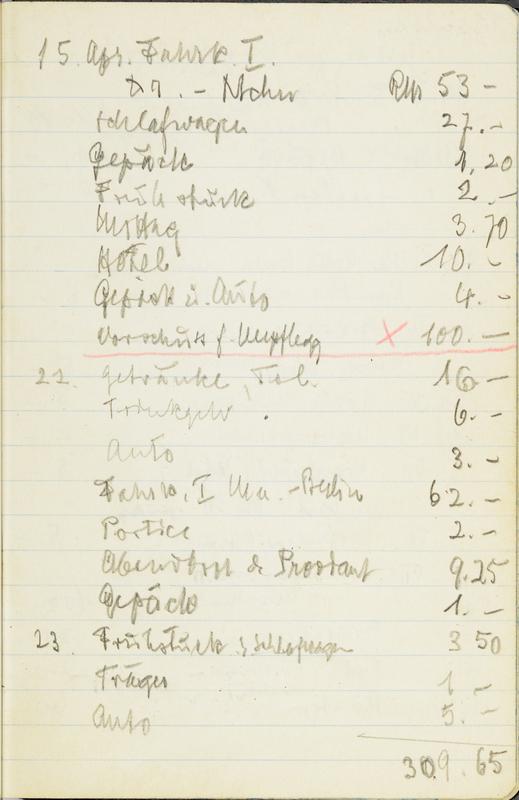 15. Apr. Fahrk. I.
– Mchn RM 53 –
Schlafwagen 27. –
Gepäck 1,20
Frühstück 2. –
Mittag 3.70
Hotel 10. –
Gepäck u. Auto 4. –
Vorschuss f. Verpflegg × 100. –
22. Getränke, Tel. 16 –
Trinkgeld 6. –
Auto 3. –
Fahrk. I Mü. – Berlin 62. –
Portier 2. –
Abendbrot & Proviant 9.25
Gepäck 1. –
23. Frühstück i. Schlafwagen 3 50
Träger 1 –
Auto 5. –
309.65